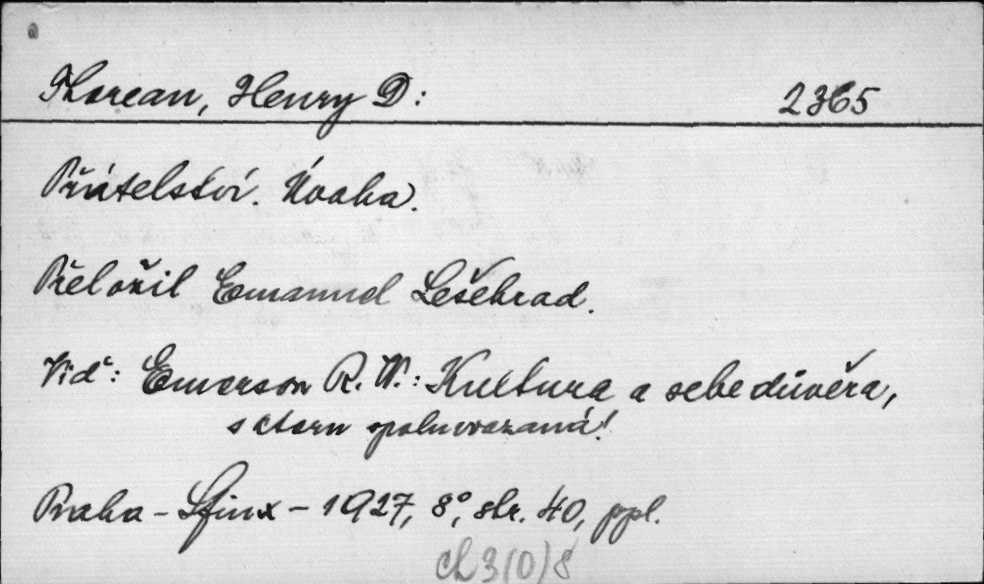 Thoreau, Henry D: 2365
Přátelství. Úvaha.
Přeložil Emanuel Lešehrad.
Viď: Emerson R. W.: Kultura a sebedůvěra,
s kterou spolusvázaná!
Praha - Sfinx - 1927, 8°, str. 40, ppl.
ch 3/0/8